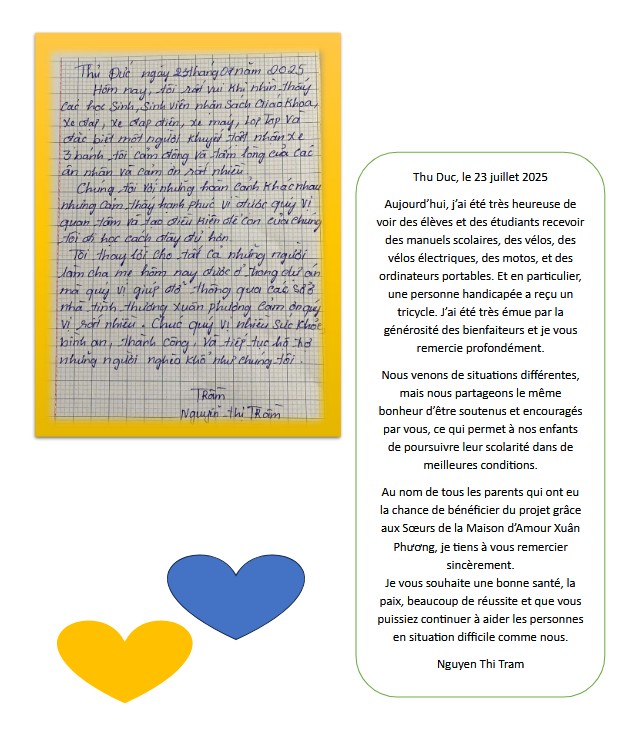 Thủ Đức ngày 23 tháng 07 năm 2025
Hôm nay, tôi rất vui khi nhìn thấy
các học sinh, sinh viên nhận sách giáo khoa,
xe đạp, xe đạp điện, xe máy, Lap Top Và
đặc biệt một người khuyết tật nhận xe
3 bánh. tôi cảm động và tấm lòng của các
ân nhân và cảm ơn rất nhiều.
Chúng tôi với những hoàn cảnh khác nhau
nhưng cảm thấy hạnh phúc vì được quý vị
quan tâm và tạo điều kiện để con của chúng
tôi đi học cách đầy đủ hơn.
Tôi thay lời cho tất cả những người
làm cha mẹ hôm nay được ở trong dự án
mà quý vị giúp đỡ thông qua các Sơ ở
nhà tình thương Xuân phương cảm ơn quý
vị rất nhiều. Chúc quý vị nhiều sức khỏe
bình an, thành công, và tiếp tục hỗ trợ
những người nghèo khổ như chúng tôi.
Trâm
Nguyễn thị Trâm
Thu Duc, le 23 juillet 2025
Aujourd’hui, j’ai été très heureuse de
voir des élèves et des étudiants recevoir
des manuels scolaires, des vélos, des
vélos électriques, des motos, et des
ordinateurs portables. Et en particulier,
une personne handicapée a reçu un
tricycle. J’ai été très émue par la
générosité des bienfaiteurs et je vous
remercie profondément.
Nous venons de situations différentes,
mais nous partageons le même
bonheur d’être soutenus et encouragés
par vous, ce qui permet à nos enfants
de poursuivre leur scolarité dans de
meilleures conditions.
Au nom de tous les parents qui ont eu
la chance de bénéficier du projet grâce
aux Sœurs de la Maison d’Amour Xuân
Phương, je tiens à vous remercier
sincèrement.
Je vous souhaite une bonne santé, la
paix, beaucoup de réussite et que vous
puissiez continuer à aider les personnes
en situation difficile comme nous.
Nguyen Thi Tram